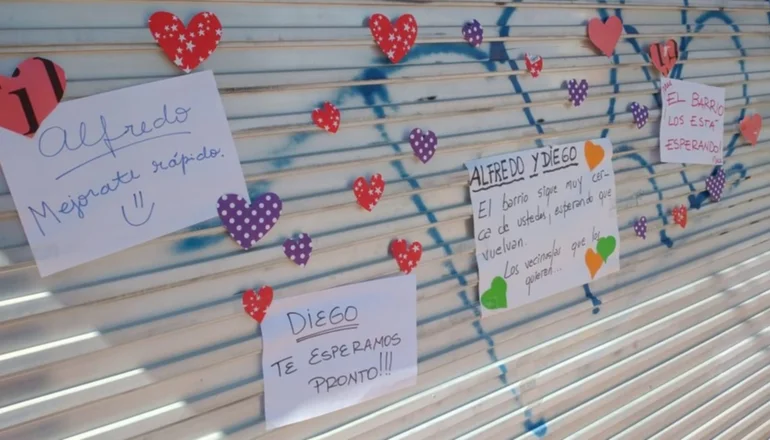 Alfredo
Mejorate rápido.
DIEGO
TE ESPERAMOS
PRONTO!!!
ALFREDO Y DIEGO
El barrio sigue muy cer-
ca de ustedes, esperando que
vuelvan.
Los vecinos/as que los
quieren...
¡EL BARRIO
LOS ESTÁ
ESPERANDO!